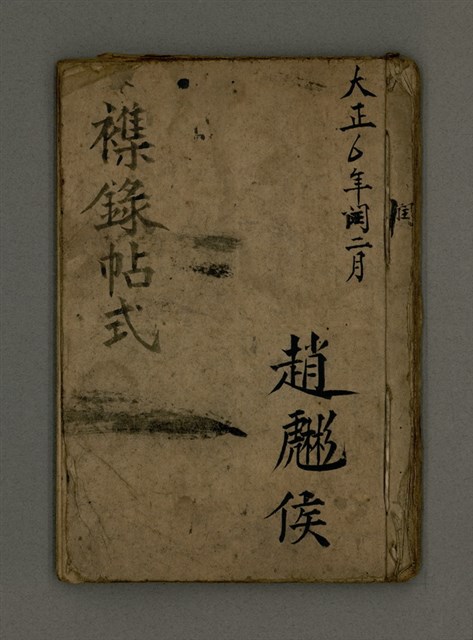 大正6年閏二月
趙虨侯
襍錄帖式